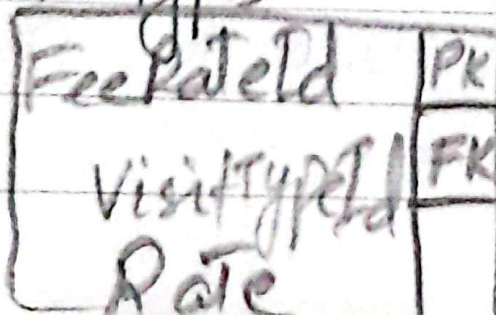 FeeRateId PK
VisitTypeId FK
Rate